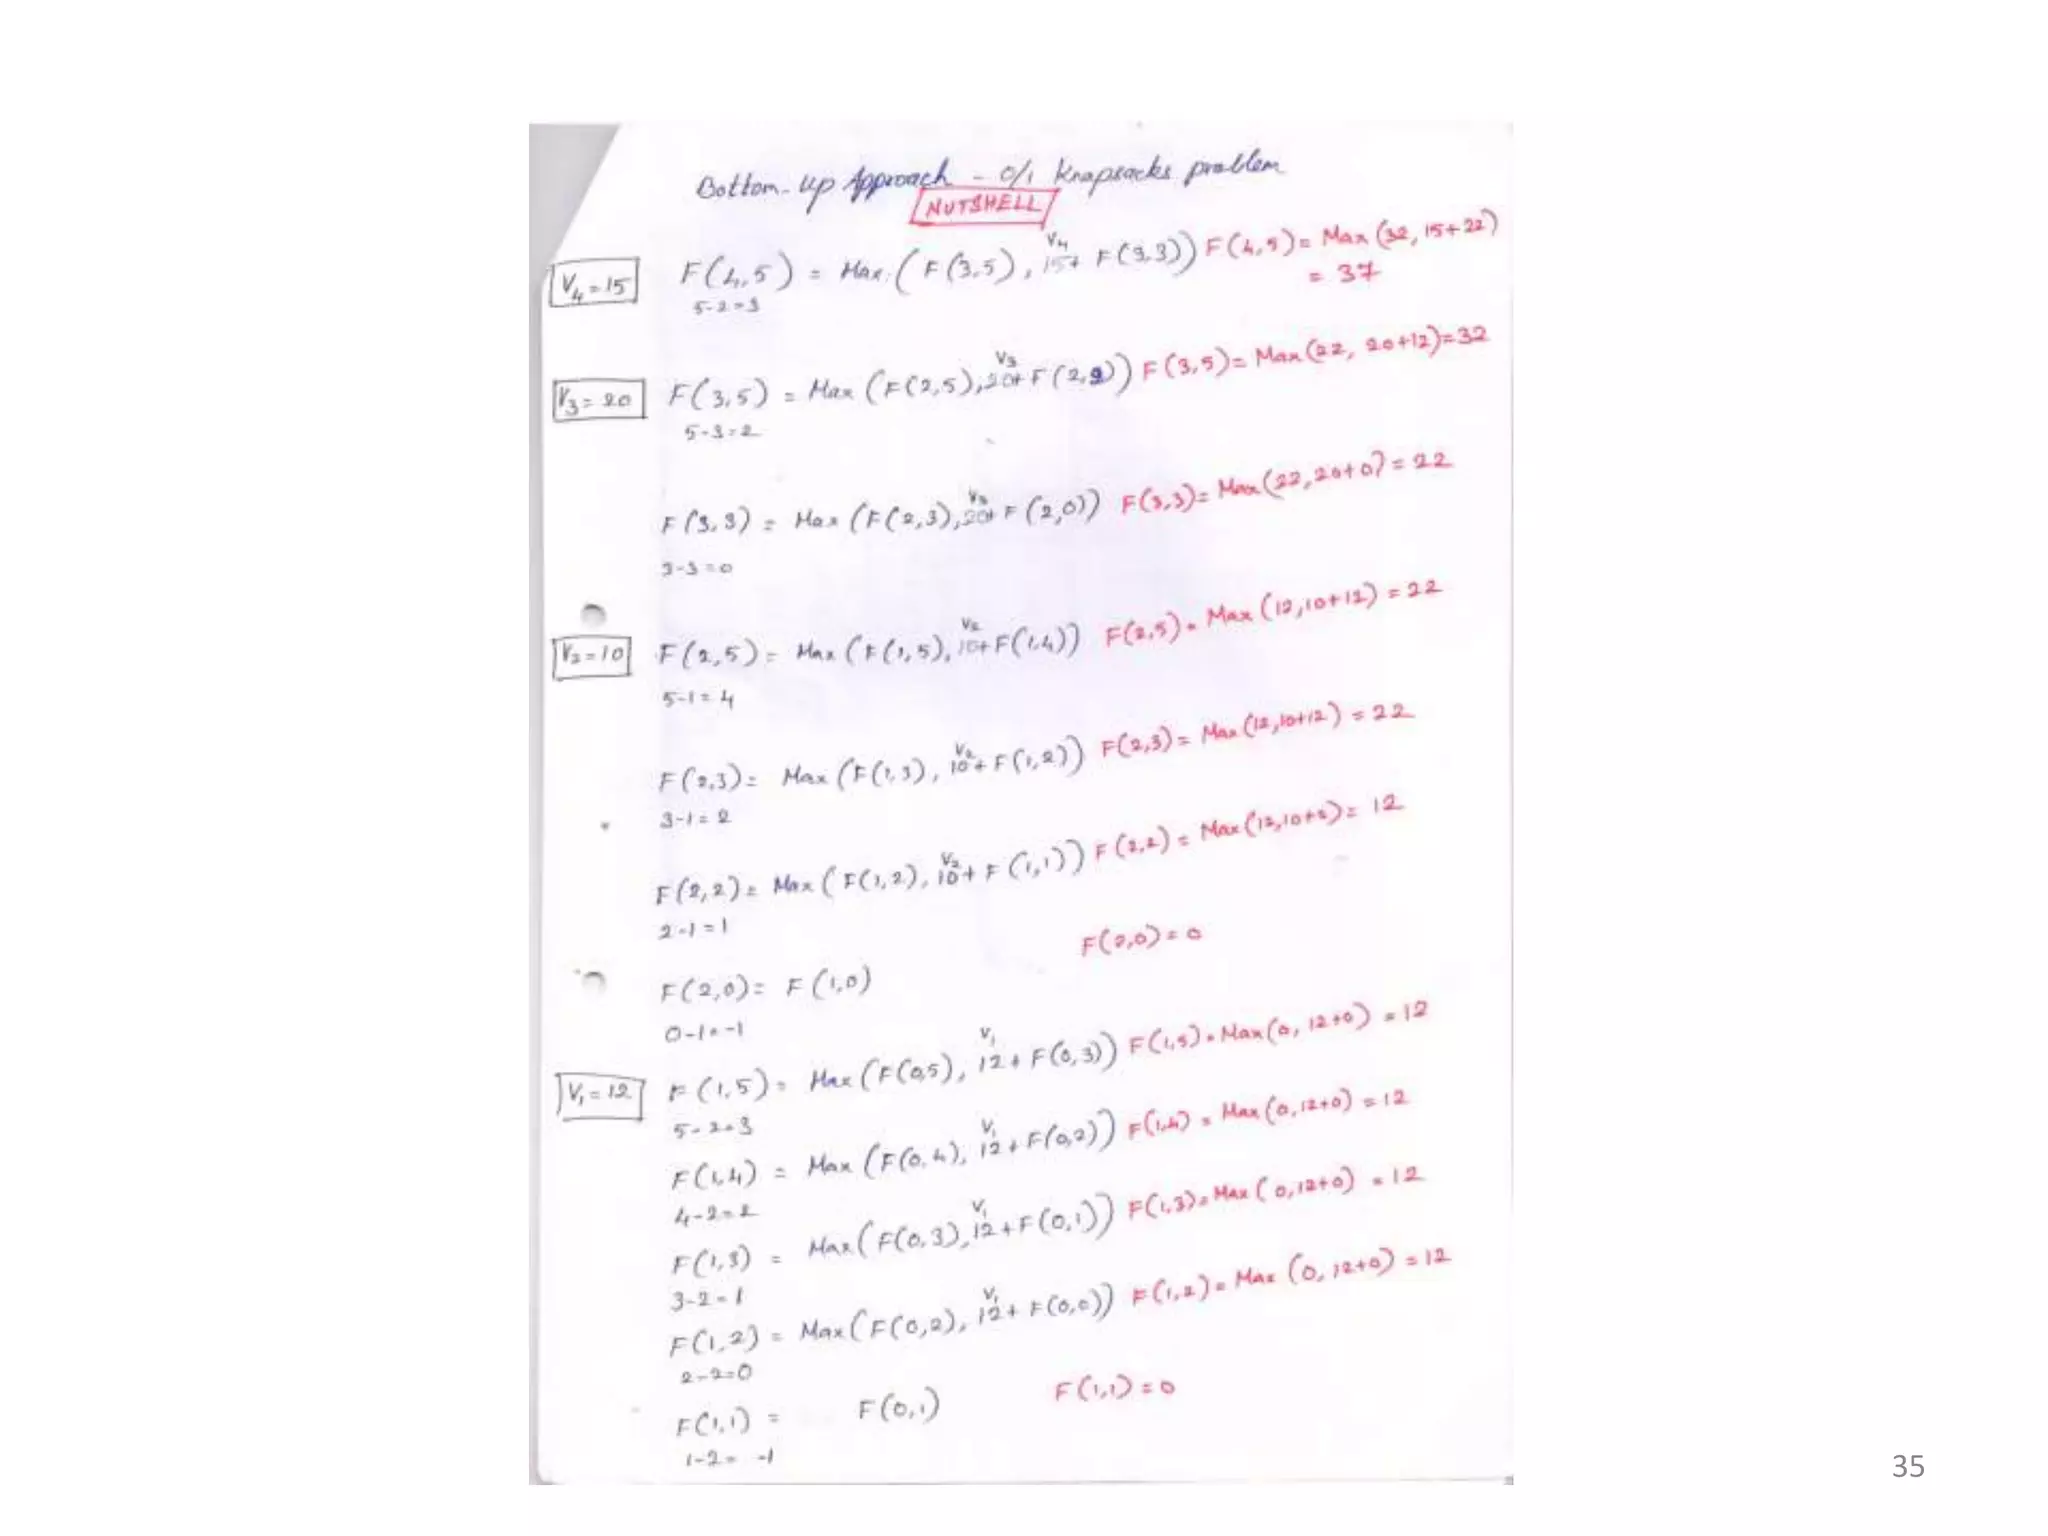 Bottom-up Approach - 0/1 Knapsacks problem
NUTSHELL
V4=15 F(4,5) = Max(F(3,5), V4 15+ F(3,3)) F(4,5)= Max(32, 15+22)
= 37
5-2=3
V3=20 F(3,5) = Max(F(2,5), V3 20+F(2,2)) F(3,5)= Max(22, 20+12)=32
5-3=2
F(3,3) = Max(F(2,3), V3 20+F(2,0)) F(3,3)= Max(22,20+0)=22
3-3=0
V2=10 F(2,5)= Max(F(1,5), V2 10+F(1,4)) F(2,5)= Max(12,10+12)=22
5-1=4
F(2,3)= Max(F(1,3), V2 10+F(1,2)) F(2,3)= Max(12,10+12)=22
3-1=2
F(2,2)= Max(F(1,2), V2 10+F(1,1)) F(2,2)= Max(12,10+ )= 12
2-1=1
F(2,0)=0
F(2,0)= F(1,0)
0-1=-1
V1=12 F(1,5)= Max(F(0,5), V1 12+F(0,3)) F(1,5)=Max(0, 12+0)=12
5-2=3
F(1,4) = Max(F(0,4), V1 12+F(0,2)) F(1,4)= Max(0,12+0)=12
4-2=2
F(1,3) = Max(F(0,3), V1 12+F(0,1)) F(1,3)=Max(0,12+0)=12
3-2=1
F(1,2)= Max(F(0,2), V1 12+F(0,0)) F(1,2)=Max(0,12+0)=12
2-2=0
F(1,1) = F(0,1) F(1,1)=0
1-2= -1
35